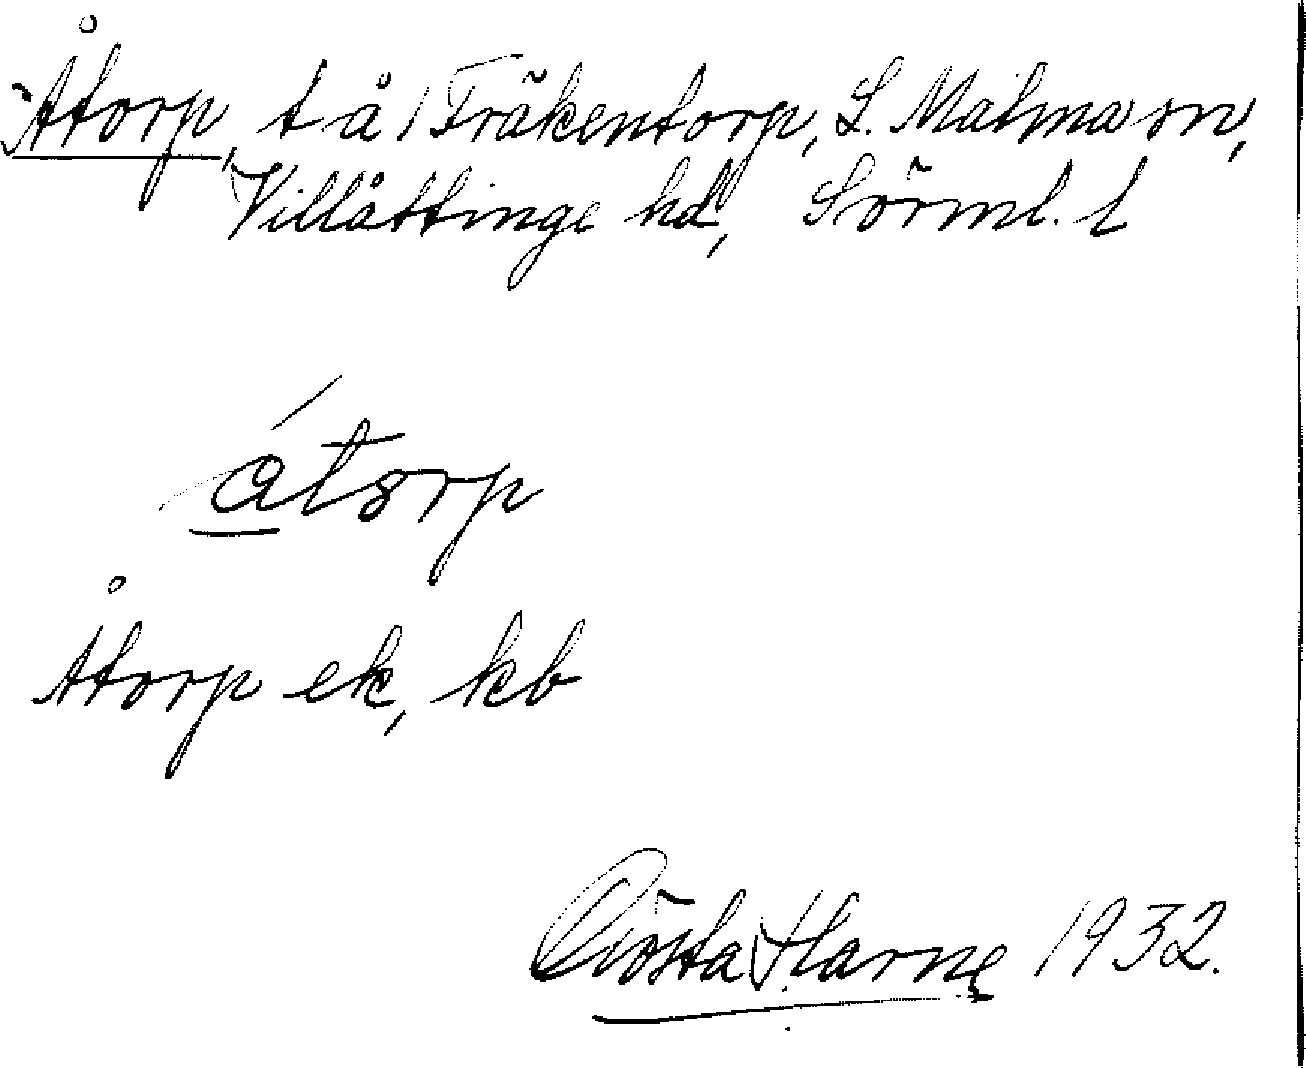 Åtorp, t å 1 Träkentorp, L. Malma sn,
Villåttinge hd, Sörml. l
åtorp
Åtorp ek, kb
Gösta Harne 1932.